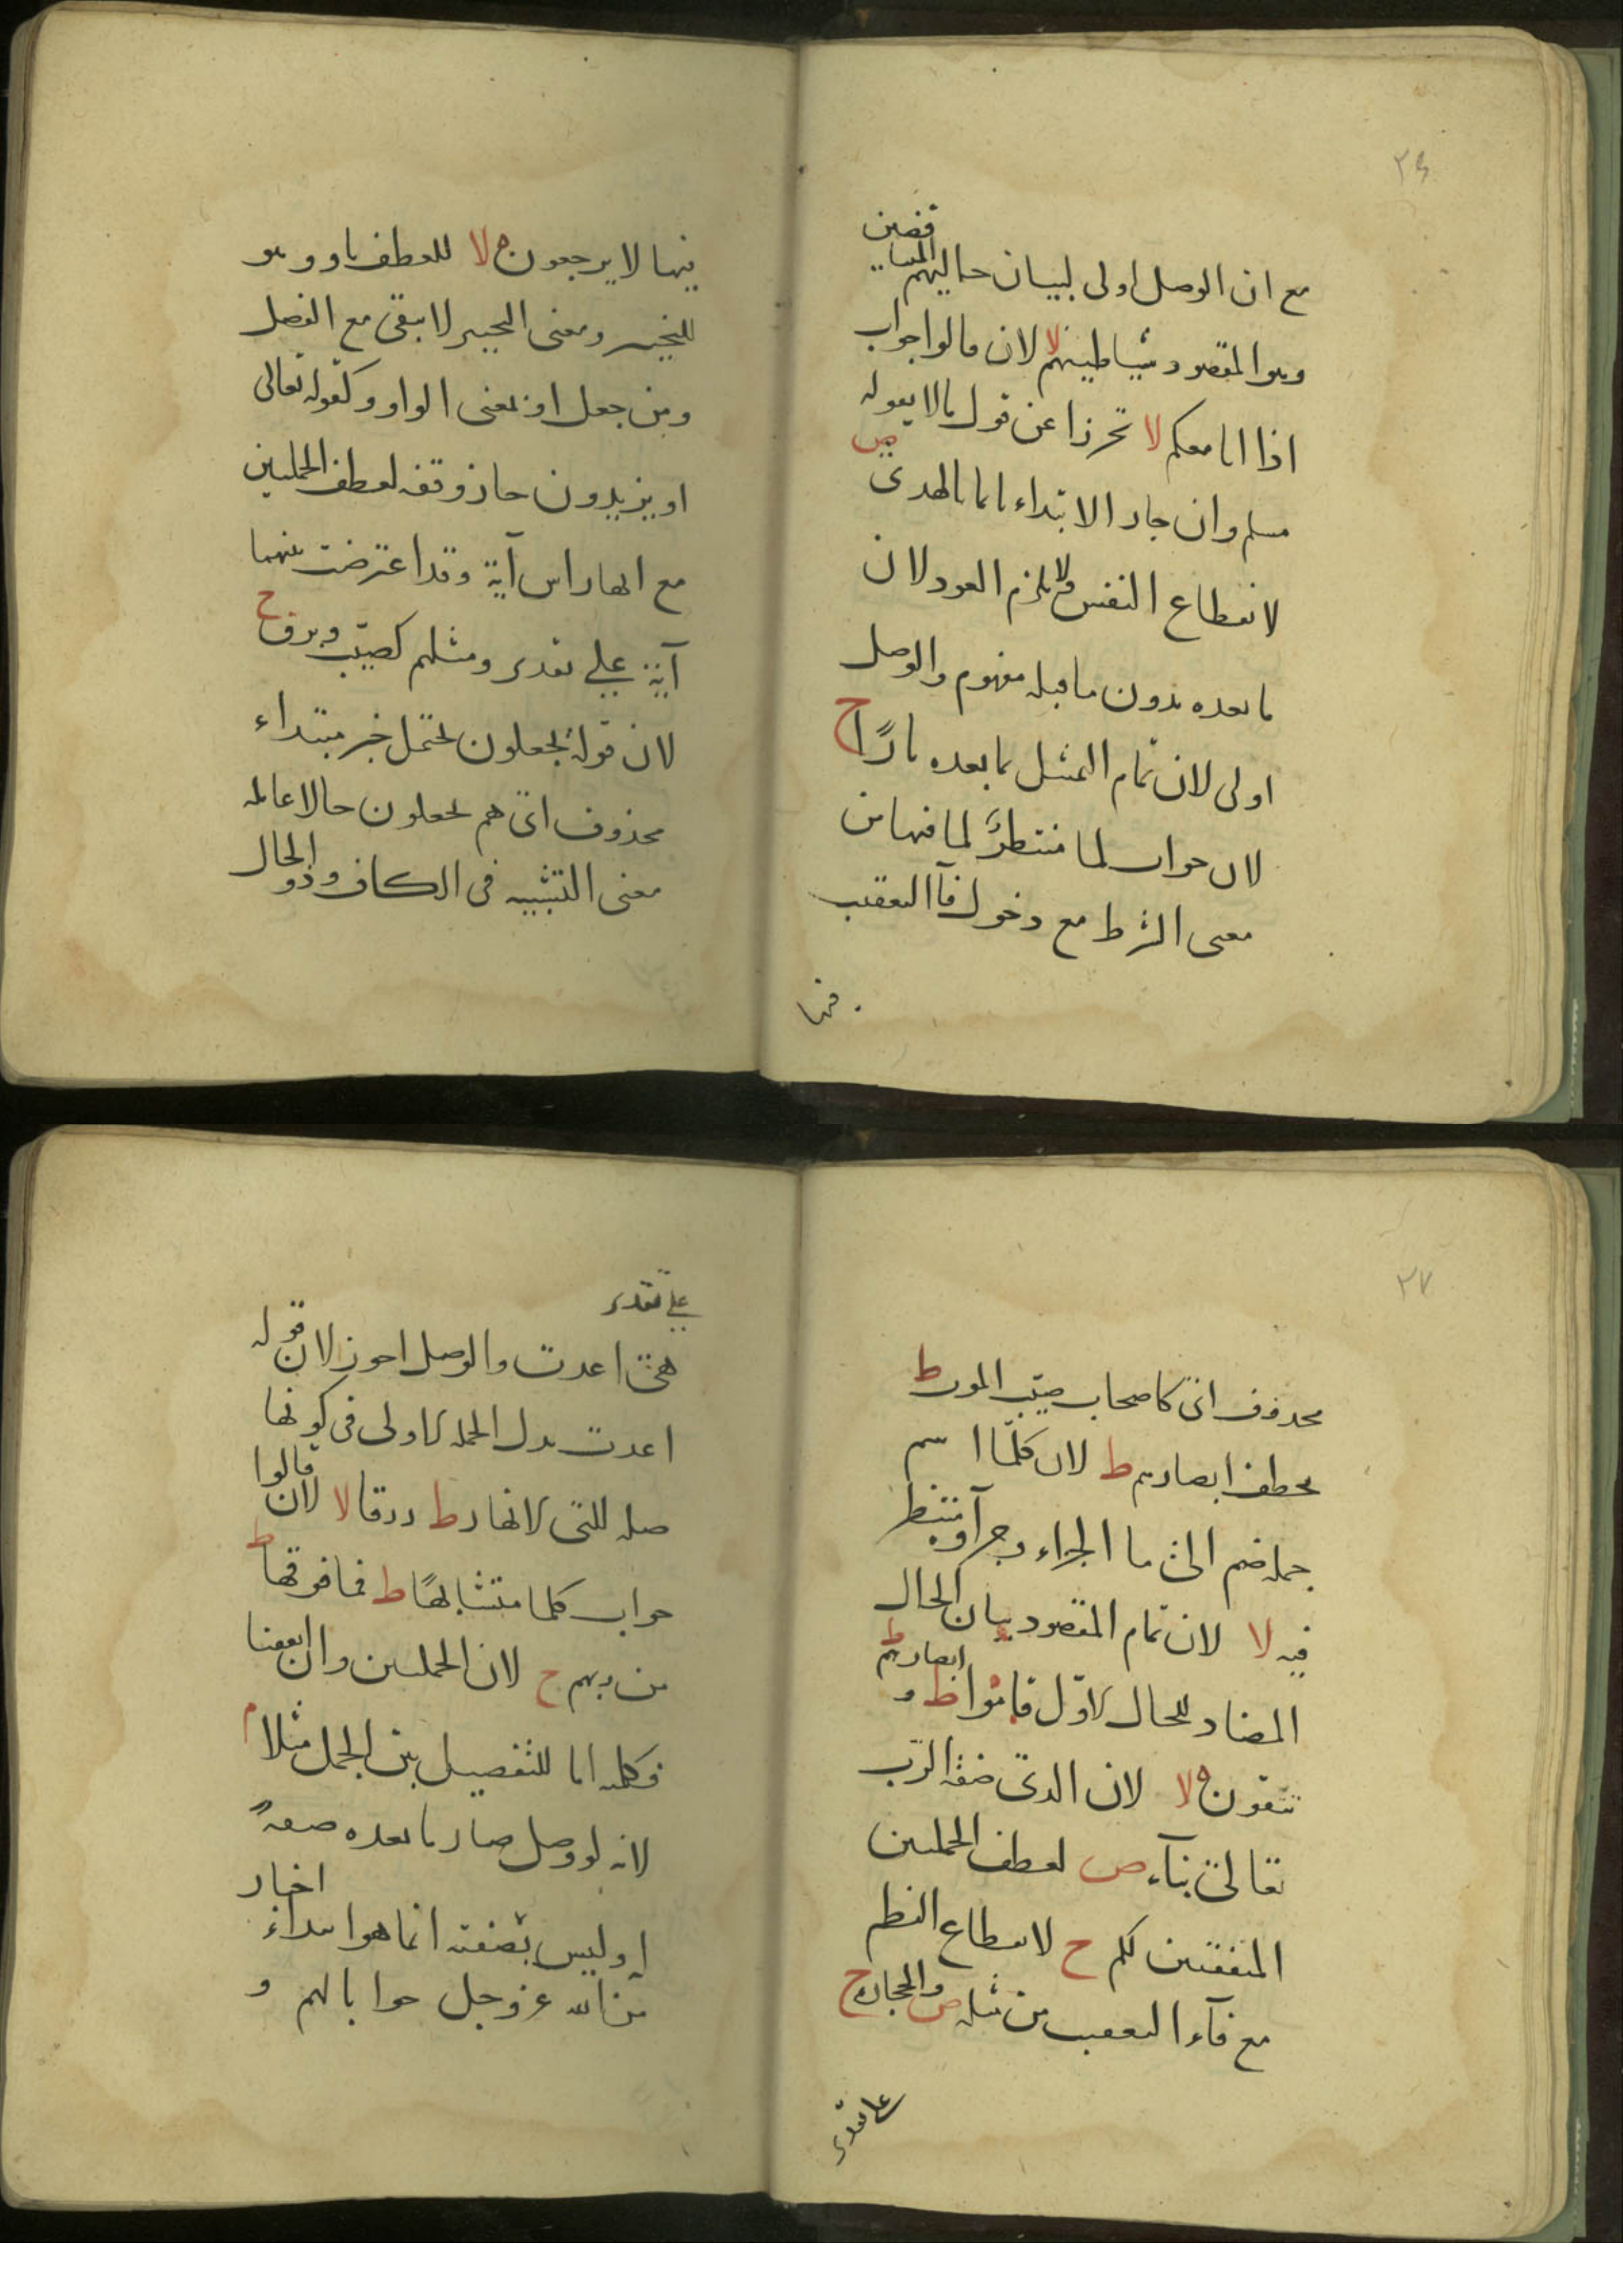 ٢٦
مع ان الوصل اولى لبيان حاليهم المتناقضين
وهو المقصود شياطينهم لا لان قالوا جواب
اذا انا معكم لا تحرزا عن قول ما لا يقوله
مسلم وان جاز الابتداء انما بالهدى ص
لانقطاع النفس ولا يلزم العود لان
ما بعده بدون ما قبله مفهوم والوصل
اولى لان تمام المثل بما بعده نارًا ج
لان جواب لما منتظر لما فيها من
معنى الشرط مع دخول فآ التعقيب
فيها
فيها لا يرجعون ه لا للعطف باو وهو
للتخيير ومعنى التخيير لا يبقى مع الفصل
ومن جعل او بمعنى الواو وكقوله تعالى
او يزيدون جاز وقفه لعطف الجملتين
مع انها راس آية وقد اعترضت بينهما
آية على تقدير ومثلهم كصيّب وبرق ج
لان قوله يجعلون يحتمل خبر مبتداء
محذوف اى هم يجعلون حالا عامله
معنى التشبيه فى الكاف وذو الحال
٢٧
محذوف اى كاصحاب صيّب الموت ط
يخطف ابصارهم ط لان كلّما اسم
جمله ضم الى ما الجزاء وجرآ وينتظر
فيه لا لان تمام المقصود بيان الحال
المضاد للحال الاوّل قاموا ط وابصارهم ط
تتقون ه لا لان الذى صفة الرّب
تعالى بنآء ص لعطف الجملتين
المتفقتين لكم ج لانقطاع النظم
مع فآء التعقيب من مثله ص والحجارة ج
على تقدير
على تقدير
هى اعدت والوصل اجوز لان قوله
اعدت بدل الجملة الاولى فى كونها
صله للتى الانهار ط رزقا لا لان قالوا
جواب كلما متشابهًا ط فما فوقها ط
من ربهم ج لان الجملتين وان اتفقتا
فكلمة اما للتفصيل بين الجمل مثلا م
لانه لو وصل صار ما بعده صفةً
او ليس بصفته انما هو ابتداء اخبار
من الله عز وجل جوابا لهم و